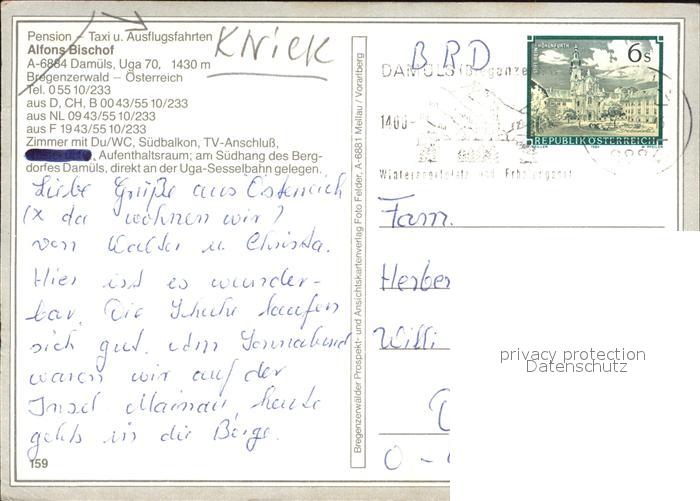 Pension – Taxi u. Ausflugsfahrten
Alfons Bischof
A-6884 Damüls, Uga 70, 1430 m
Bregenzerwald – Österreich
Tel. 0 55 10/233
aus D, CH, B 00 43/55 10/233
aus NL 09 43/55 10/233
aus F 19 43/55 10/233
Zimmer mit Du/WC, Südbalkon, TV-Anschluß,
, Aufenthaltsraum; am Südhang des Berg-
dorfes Damüls, direkt an der Uga-Sesselbahn gelegen.
Knick
Liebe Grüße aus Österreich
(x da wohnen wir)
von Walter u. Christa.
Hier ist es wunder-
bar. Die Schuhe laufen
sich gut. Am Sonnabend
waren wir auf der
Insel Mainau, heute
gehts in die Berge.
159
Bregenzerwälder Prospekt- und Ansichtskartenverlag Foto Felder, A-6881 Mellau / Vorarlberg
BRD
DAMÜLS (Bregenze
1400-
6 S
REPUBLIK ÖSTERREICH
Fam.
Herber
Willi
O -
privacy protection
Datenschutz